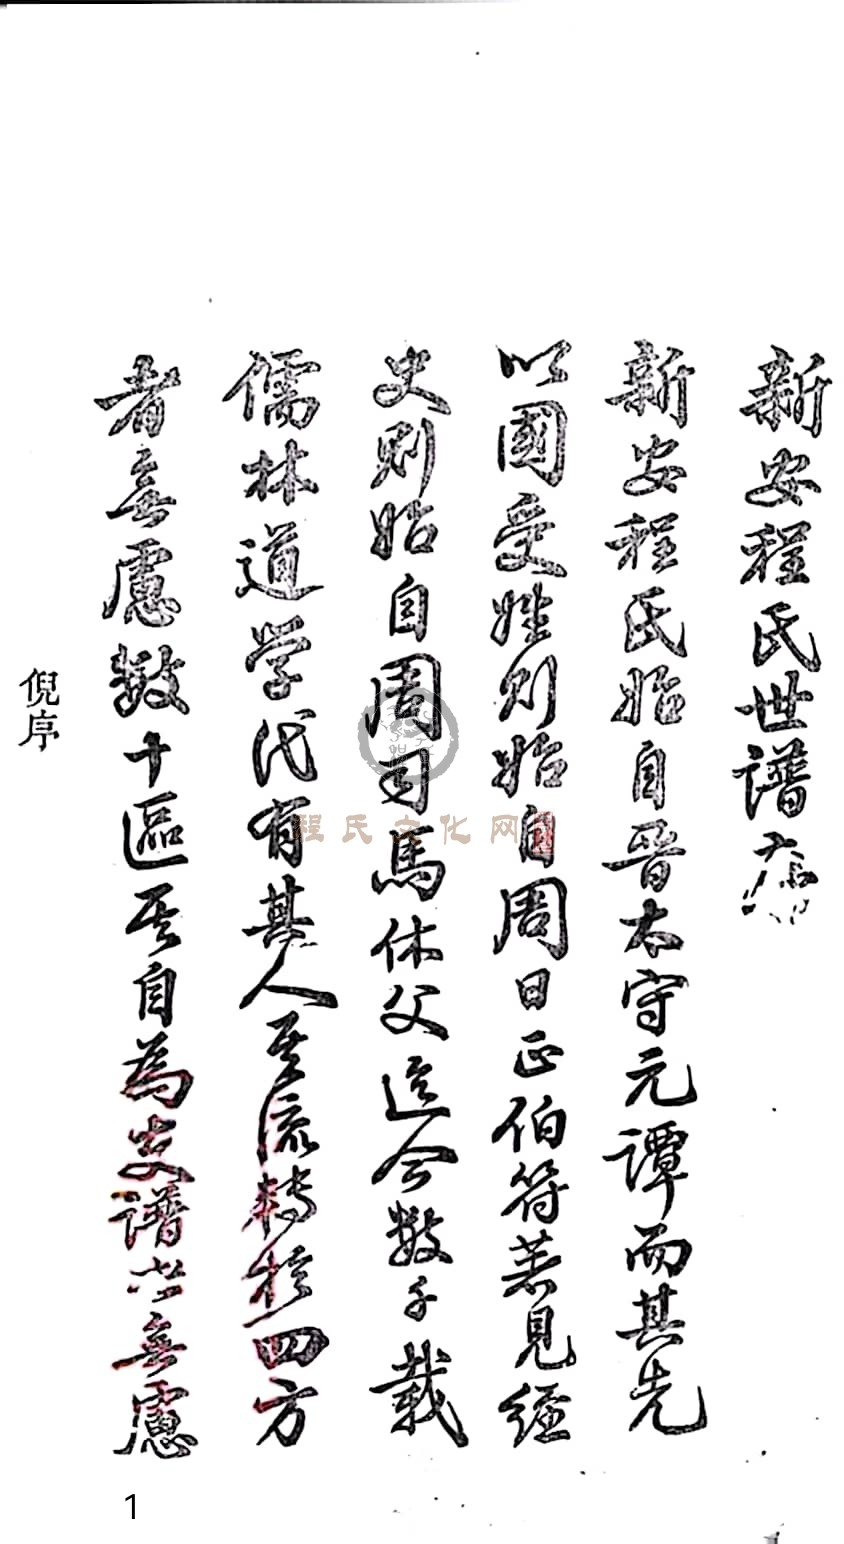 新安程氏世譜序
新安程氏始自晉太守元譚而其先
以國受姓則始自周日正伯符若見經
史則始自周司馬休父迄今數千載
儒林道学代有其人至流轉於四方
者無慮數十區至自為支譜亦無慮
倪序
程氏文化网
1